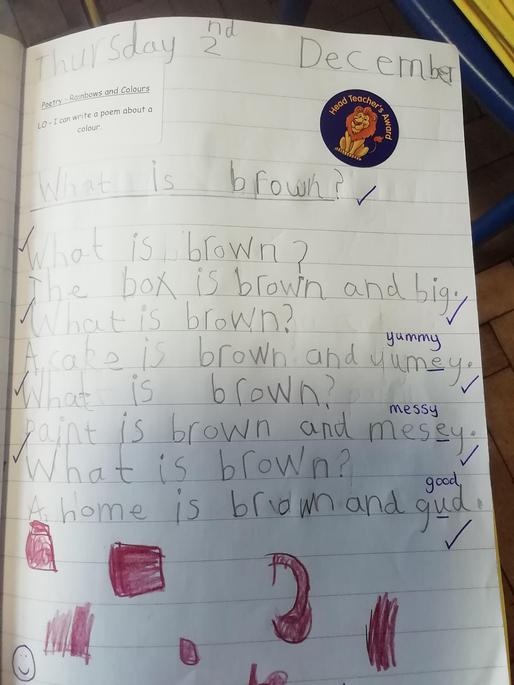 Thursday 2nd December
Poetry - Rainbows and Colours
LO - I can write a poem about a
colour.
Head Teacher's Award
What is brown?
What is brown?
The box is brown and big.
What is brown?
yummy
A cake is brown and yumey.
What is brown?
messy
paint is brown and mesey.
What is brown?
good
A home is brown and gud.